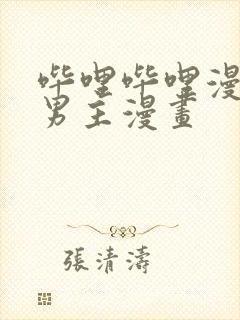 哔哩哔哩漫
男主漫畫
張清濤